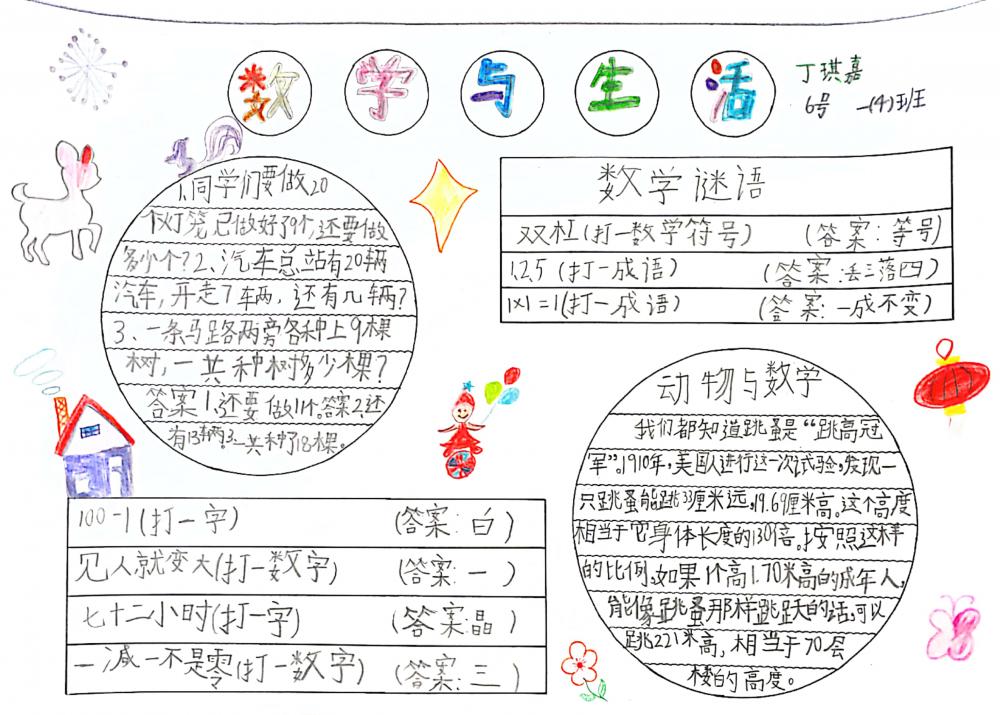 数学与生活
丁琪嘉
6号 一(4)班
1.同学们要做20
个灯笼已做好了9个,还要做
多少个?2、汽车总站有20辆
汽车,开走7辆,还有几辆?
3、一条马路两旁各种上9棵
树,一共种树多少棵?
答案1.还要做11个。答案2.还
有13辆。3.一共种了18棵。
数学谜语
双杠(打一数学符号) (答案:等号)
1,2,5(打一成语) (答案:丢三落四)
1×1=1(打一成语) (答案:一成不变)
动物与数学
我们都知道跳蚤是“跳高冠
军”。1910年,美国人进行这一次试验,发现一
只跳蚤能跳33厘米远,19.69厘米高。这个高度
相当于它身体长度的130倍。按照这样
的比例,如果1个高1.70米高的成年人,
能像跳蚤那样跳跃的话,可以
跳221米高,相当于70层
楼的高度。
100-1(打一字) (答案:白)
见人就变大(打一数字) (答案:一)
七十二小时(打一字) (答案:晶)
一减一不是零(打一数字) (答案:三)